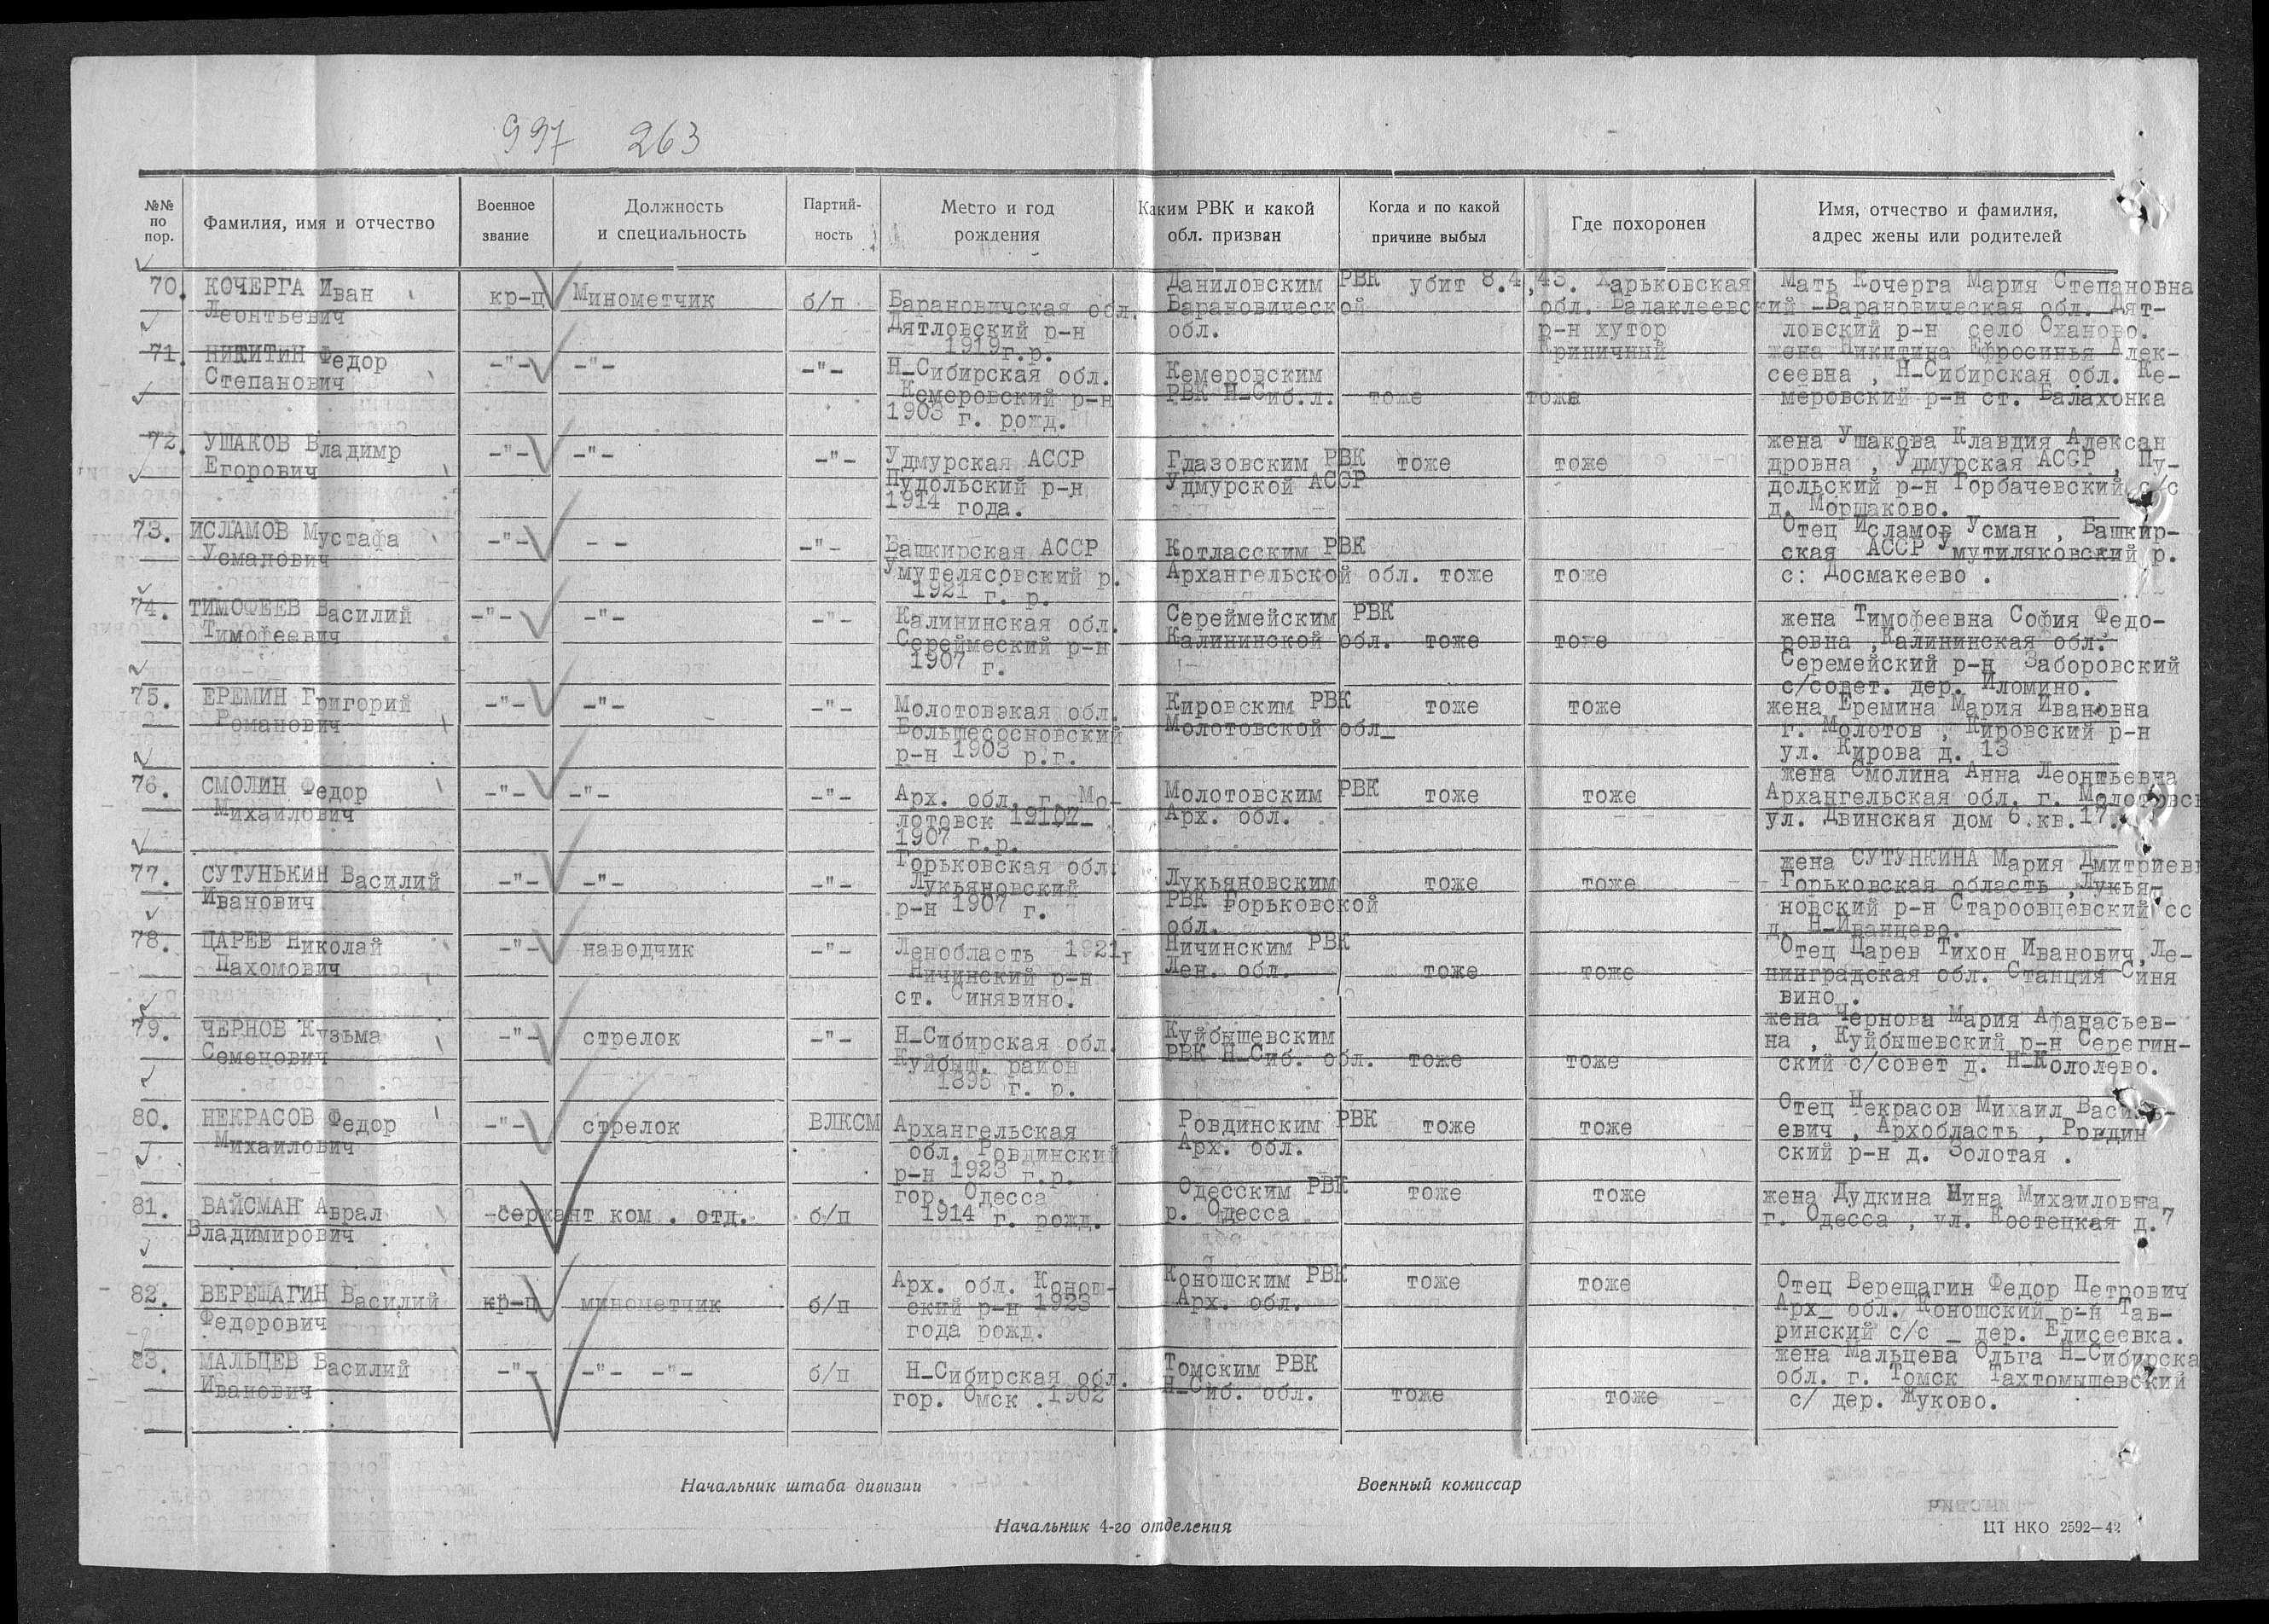 997 263
№№ по пор.
Фамилия, имя и отчество
Военное звание
Должность и специальность
Партий-ность
Место и год рождения
Каким РВК и какой обл. призван
Когда и по какой причине выбыл
Где похоронен
Имя, отчество и фамилия, адрес жены или родителей
70. КОЧЕРГА Иван
Леонтьевич
кр-ц
Минометчик
б/п
Барановичская обл.
Дятловский р-н
1919г.р.
Даниловским РВК
Барановической
обл.
убит 8.4.43.
Харьковская
обл. Балаклеевский
р-н хутор
Криничный
Мать Кочерга Мария Степановна
-Барановическая обл. Дят-
ловский р-н село Оханово.
71. НИКИТИН Федор
Степанович
-"-
-"-
-"-
Н-Сибирская обл.
Кемеровский р-н
1903 г. рожд.
Кемеровским
РВК Н-Сиб.л.
тоже
тоже
жена Никитина Ефросинья Алек-
сеевна , Н-Сибирская обл. Ке-
меровский р-н ст. Балахонка
72. УШАКОВ Владимр
Егорович
-"-
-"-
-"-
Удмурская АССР
Пудольский р-н
1914 года.
Глазовским РВК
Удмурской АССР
тоже
тоже
жена Ушакова Клавдия Алексан
дровна , Удмурская АССР , Пу-
дольский р-н Горбачевский с/с
д. Моршаково.
73. ИСЛАМОВ Мустафа
Усманович
-"-
- -
-"-
Башкирская АССР
Умутелясовский р.
1921 г. р.
Котласским РВК
Архангельской обл.
тоже
тоже
Отец Исламов Усман , Башкир-
ская АССР Умутиляковский р.
с: Досмакеево .
74. ТИМОФЕЕВ Василий
Тимофеевич
-"-
-"-
-"-
Калининская обл.
Сереймеский р-н
1907 г.
Сереймейским РВК
Калининской обл.
тоже
тоже
жена Тимофеевна София Федо-
ровна ,Калининская обл.
Серемейский р-н Заборовский
с/совет. дер. Иломино.
75. ЕРЕМИН Григорий
Романович
-"-
-"-
-"-
Молотовэкая обл.
Большесосновский
р-н 1903 р.г.
Кировским РВК
Молотовской обл_
тоже
тоже
жена Еремина Мария Ивановна
г. Молотов , Кировский р-н
ул. Кирова д. 13
76. СМОЛИН Федор
Михайлович
-"-
-"-
-"-
Арх. обл. г. Мо-
лотовск 19107-
1907 г.р.
Молотовским РВК
Арх. обл.
тоже
тоже
жена Смолина Анна Леонтьевна
Архангельская обл. г. Молотовск
ул. Двинская дом 6.кв.17.
77. СУТУНЬКИН Василий
Иванович
-"-
-"-
-"-
Горьковская обл.
Лукьяновский
р-н 1907 г.
Лукьяновским
РВК Горьковской
обл.
тоже
тоже
жена СУТУНКИНА Мария Дмитриевн
Горьковская область ,Лукья-
новский р-н Староовцевский сс
д. Н-Иванцево.
78. ЦАРЕВ Николай
Пахомович
-"-
наводчик
-"-
Ленобласть 1921г
Ничинский р-н
ст. Синявино.
Ничинским РВК
Лен. обл.
тоже
тоже
Отец Царев Тихон Иванович,Ле-
нинградская обл. Станция Синя
вино .
79. ЧЕРНОВ Кузьма
Семенович
-"-
стрелок
-"-
Н-Сибирская обл.
Куйбыш. район
1895 г. р.
Куйбышевским
РВК Н-Сиб. обл.
тоже
тоже
жена Чернова Мария Афанасьев-
на , Куйбышевский р-н Серегин-
ский с/совет д. Н-Кололево.
80. НЕКРАСОВ Федор
Михайлович
-"-
стрелок
ВЛКСМ
Архангельская
обл. Ровдинский
р-н 1923 г.р.
Ровдинским РВК
Арх. обл.
тоже
тоже
Отец Некрасов Михаил Василь-
евич , Архобласть , Ровдин
ский р-н д. Золотая .
81. ВАЙСМАН Аврал
Владимирович
-сержант
ком . отд.
б/п
гор. Одесса
1914 г. рожд.
Одесским РВК
р. Одесса
тоже
тоже
жена Дудкина Нина Михаиловна
г. Одесса , ул. Костецкая д.7
82. ВЕРЕЩАГИН Василий
Федорович
кр-ц
минометчик
б/п
Арх. обл. Конош-
ский р-н 1923
года рожд.
Коношским РВК
Арх. обл.
тоже
тоже
Отец Верещагин Федор Петрович
Арх_ обл. Коношский р-н Тав-
ринский с/с _ дер. Елисеевка.
83. МАЛЬЦЕВ Василий
Иванович
-"-
-"- -"-
б/п
Н-Сибирская обл.
гор. Омск .1902
Томским РВК
Н-Сиб. обл.
тоже
тоже
жена Мальцева Ольга Н-Сибирска
обл. г. Томск Тахтомышевский
с/ дер. Жуково.
Начальник штаба дивизии
Военный комиссар
Начальник 4-го отделения
ЦТ НКО 2592—42